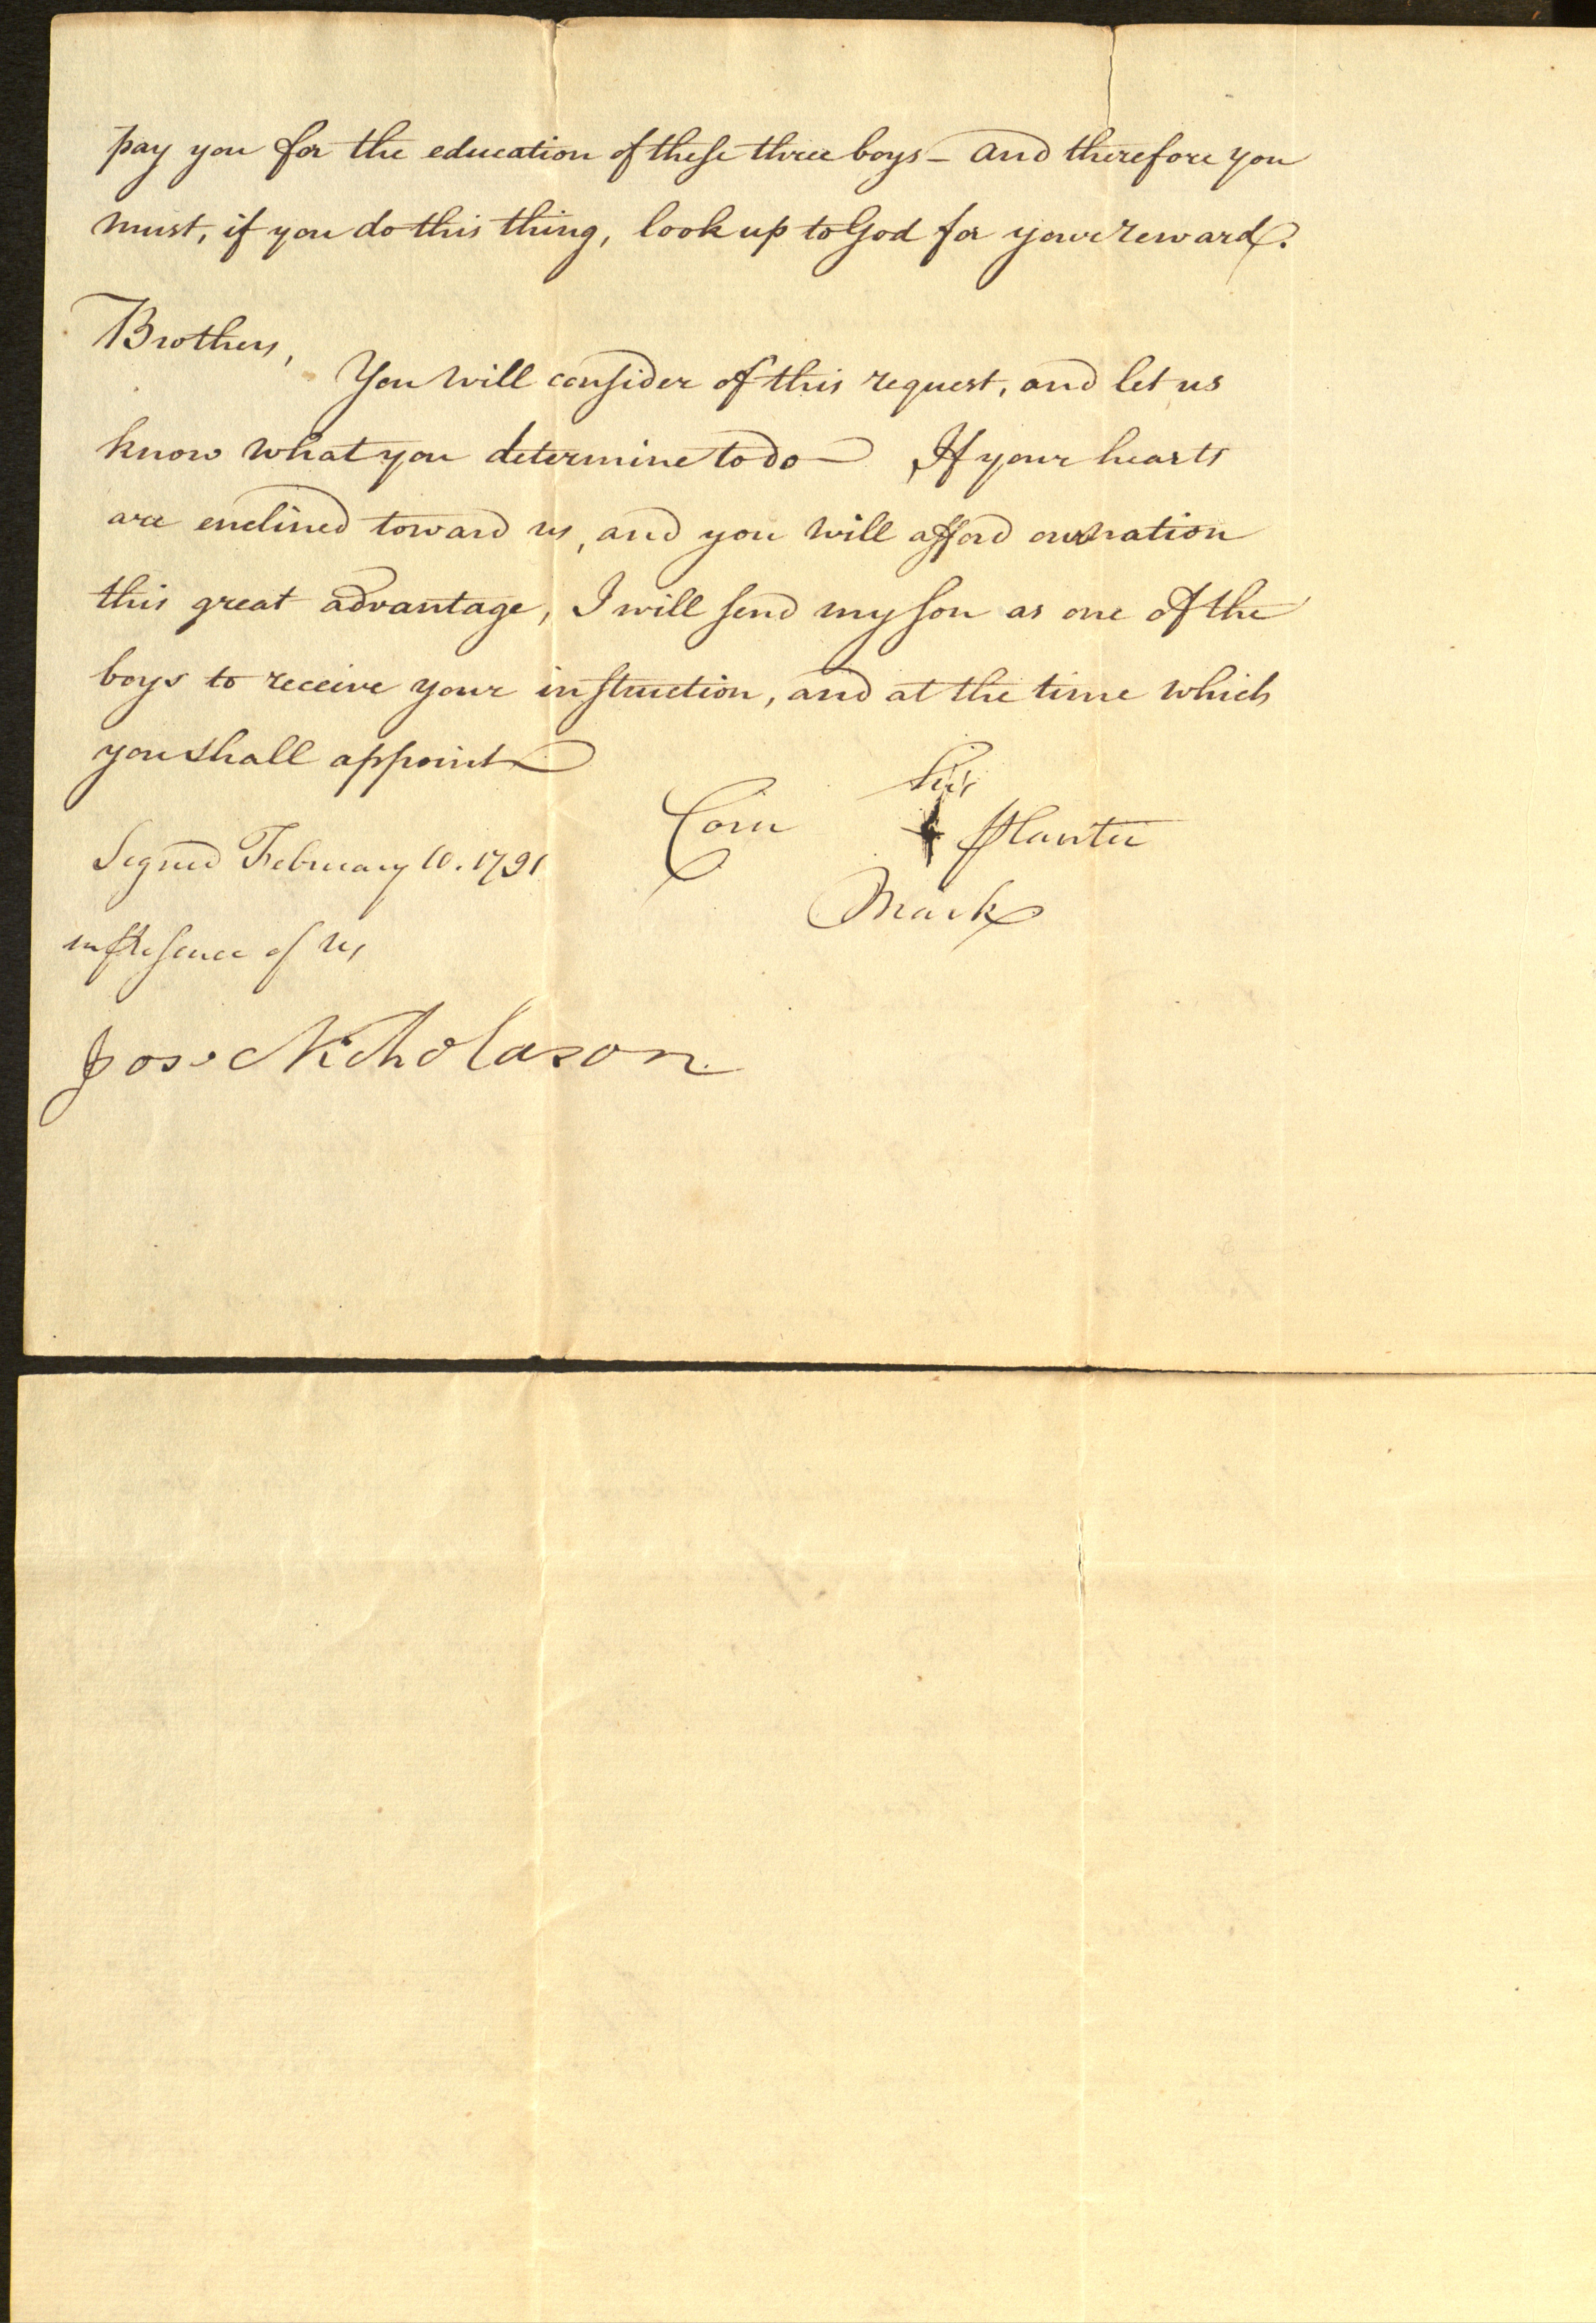 pay you for the education of these three boys — and therefore you
must, if you do this thing, look up to God for your reward.
Brothers,
You will consider of this request, and let us
know what you determine to do — If your hearts
are enclined toward us, and you will afford our nation
this great advantage, I will send my son as one of the
boys to receive your instruction, and at the time which
you shall appoint —
his
Corn Planter
Mark
Signed February 10. 1791
in presence of us
Jos. Nicholason.